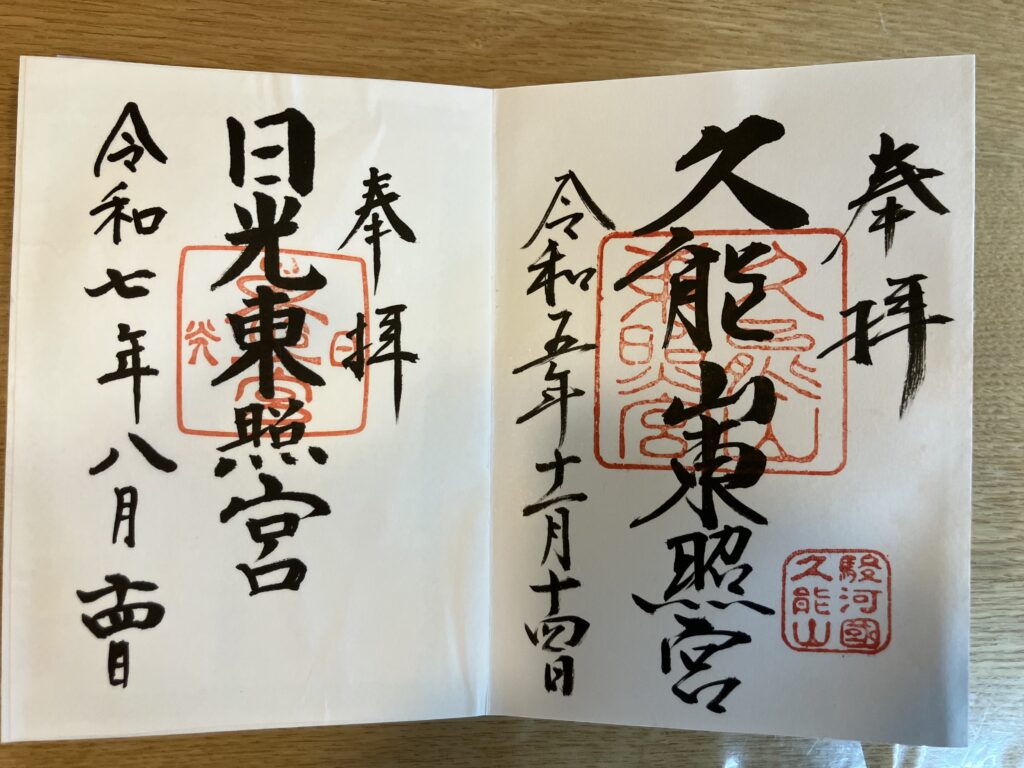 奉拝
久能山東照宮
久能山
東照宮
駿河國
久能山
令和五年十一月十四日
奉拝
日光東照宮
令和七年八月十四日